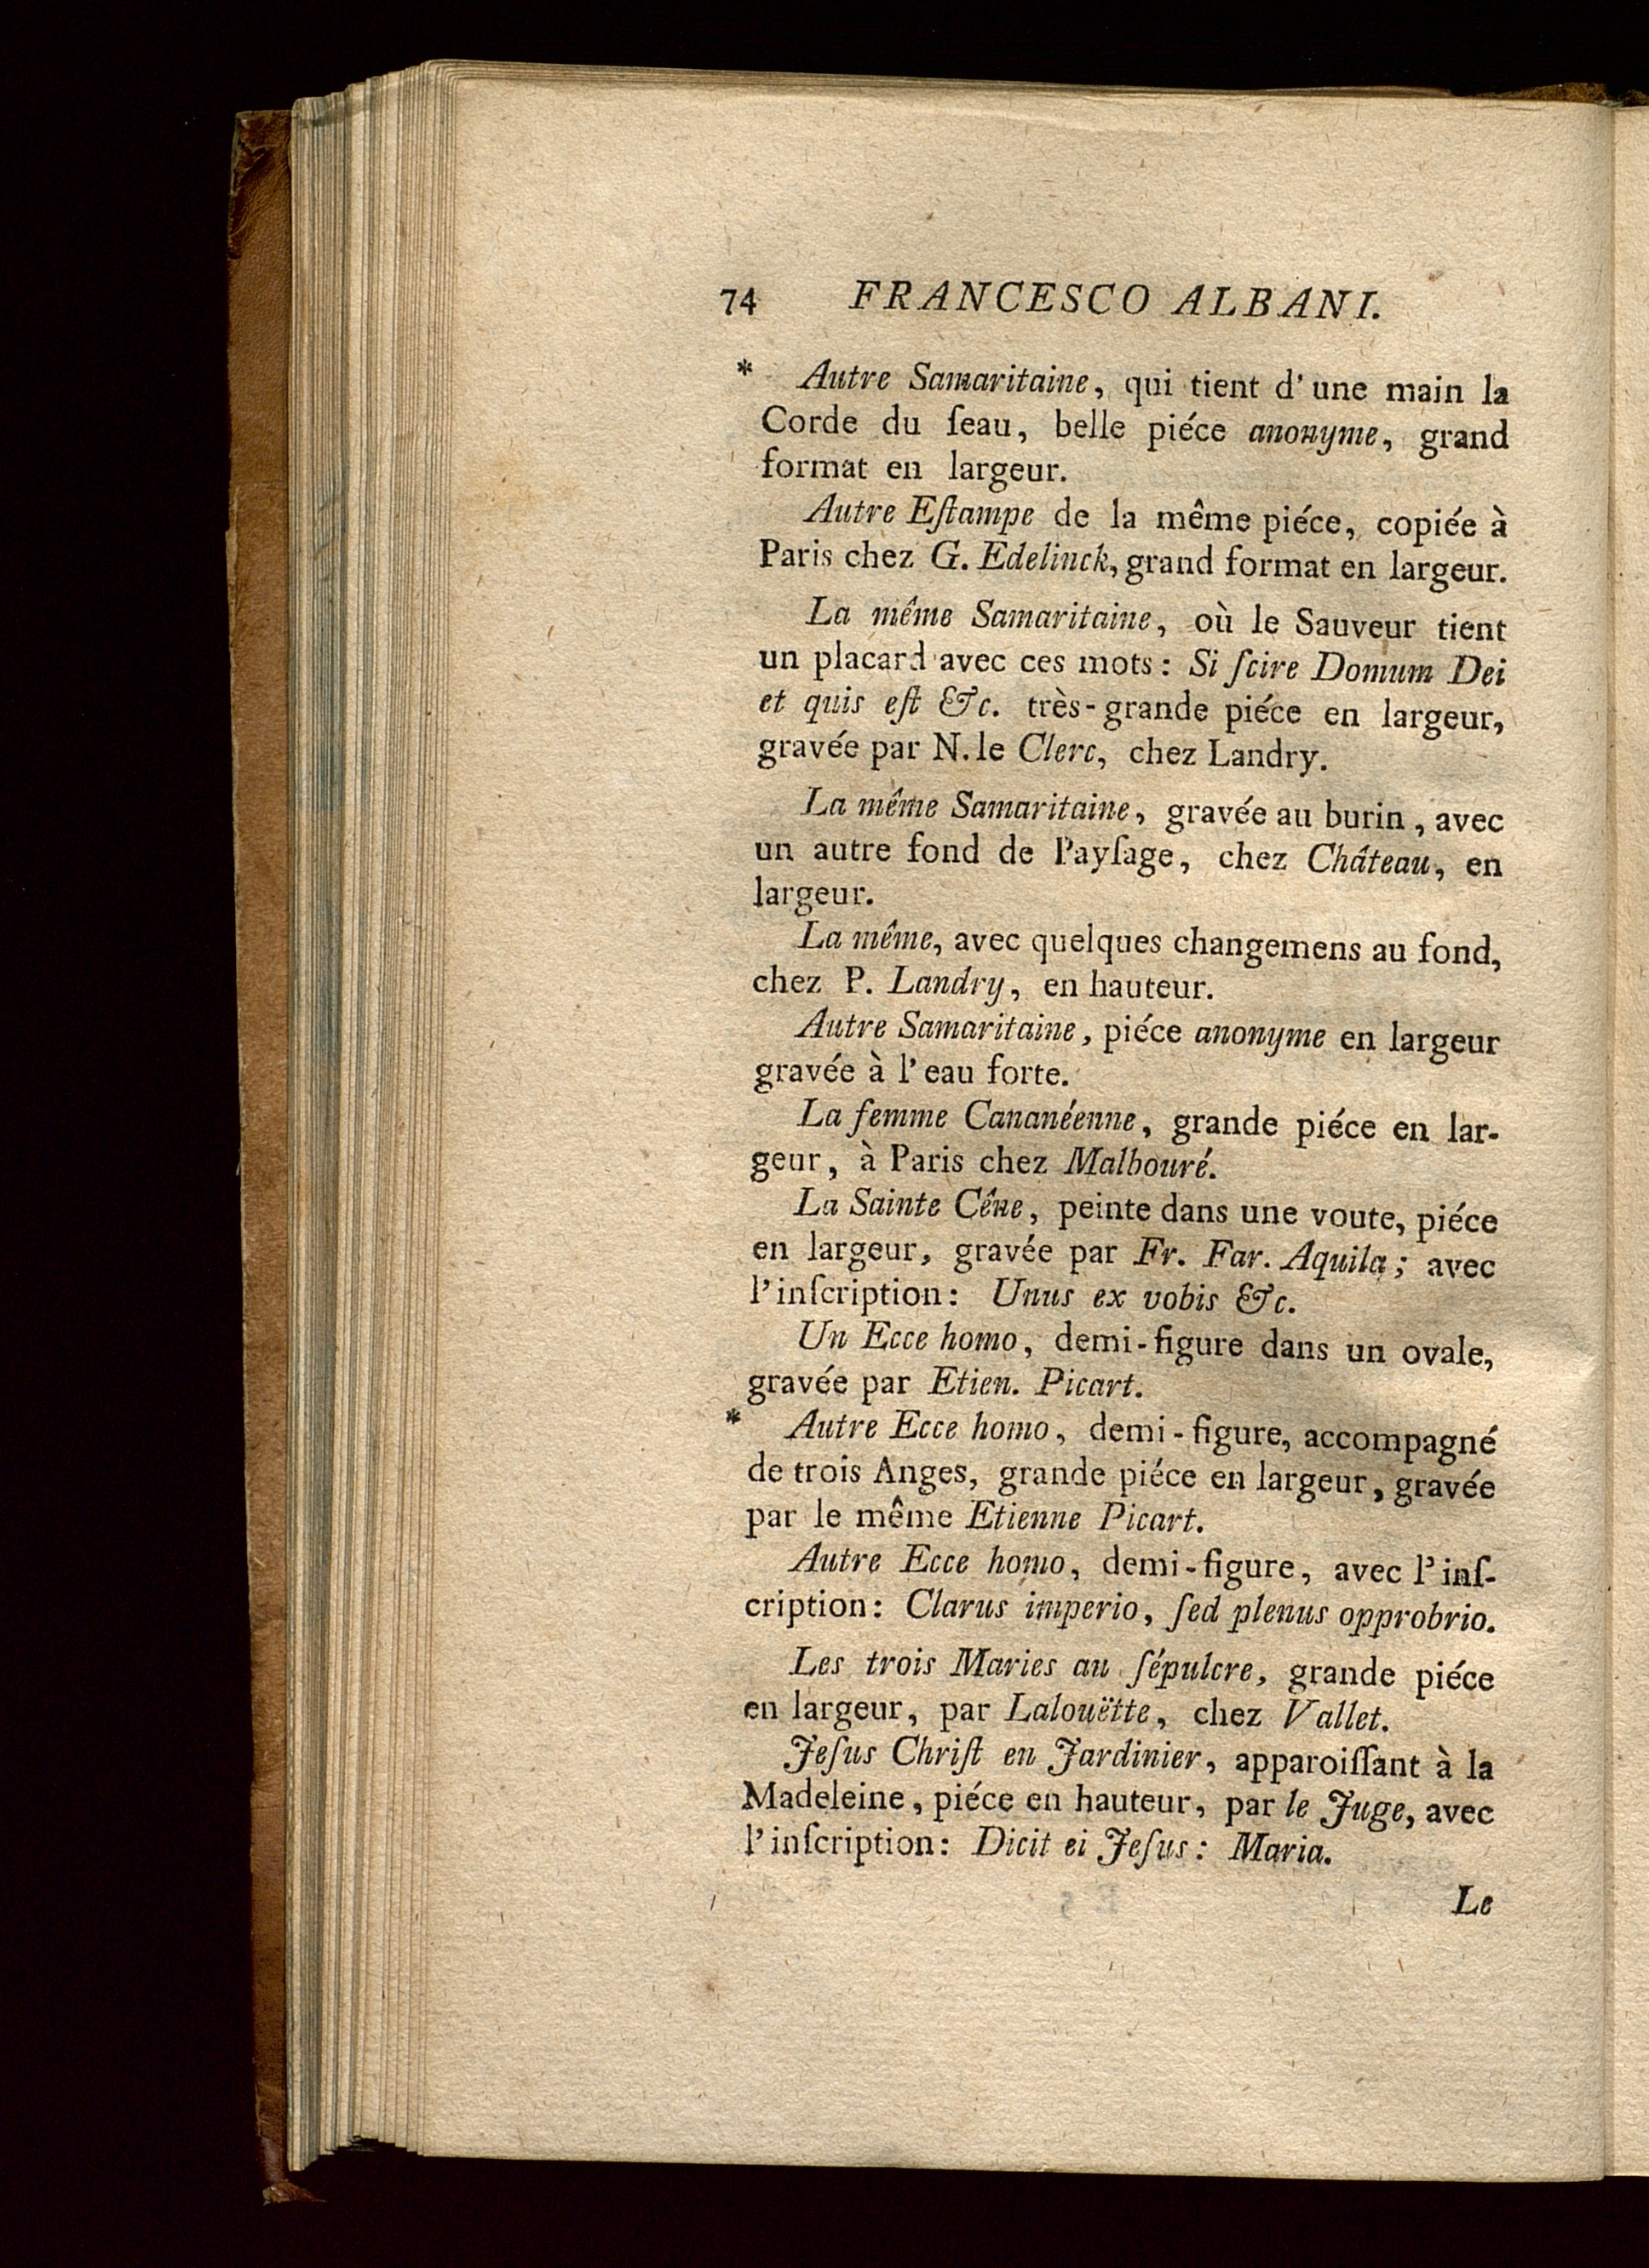 74 FRANCESCO ALBANI.
* Autre Samaritaine, qui tient d'une main la
Corde du ſeau, belle piéce anonyme, grand
format en largeur.
Autre Eſtampe de la même piéce, copiée à
Paris chez G. Edelinck, grand format en largeur.
La même Samaritaine, où le Sauveur tient
un placard avec ces mots: Si ſcire Domum Dei
et quis eſt &c. très-grande piéce en largeur,
gravée par N. le Clerc, chez Landry.
La même Samaritaine, gravée au burin, avec
un autre fond de Payſage, chez Château, en
largeur.
La même, avec quelques changemens au fond,
chez P. Landry, en hauteur.
Autre Samaritaine, piéce anonyme en largeur
gravée à l'eau forte.
La femme Cananéenne, grande piéce en lar-
geur, à Paris chez Malbouré.
La Sainte Cêne, peinte dans une voute, piéce
en largeur, gravée par Fr. Far. Aquila; avec
l'inſcription: Unus ex vobis &c.
Un Ecce homo, demi-figure dans un ovale,
gravée par Etien. Picart.
* Autre Ecce homo, demi-figure, accompagné
de trois Anges, grande piéce en largeur, gravée
par le même Etienne Picart.
Autre Ecce homo, demi-figure, avec l'inſ-
cription: Clarus imperio, ſed plenus opprobrio.
Les trois Maries au ſépulcre, grande piéce
en largeur, par Lalouëtte, chez Vallet.
Jeſus Chriſt en Jardinier, apparoiſſant à la
Madeleine, piéce en hauteur, par le Juge, avec
l'inſcription: Dicit ei Jeſus: Maria.
Le